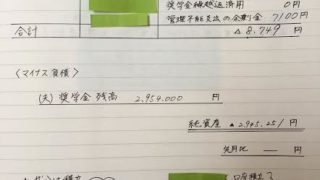 奨学金繰越返済用 0円
管理不能支出の企割金 7100円
合計 △8,749 円
〈マイナス負債〉
(夫) 奨学金 残高 2,954,000 円
純資産 ▲2,945,251 円
先月比 — 円